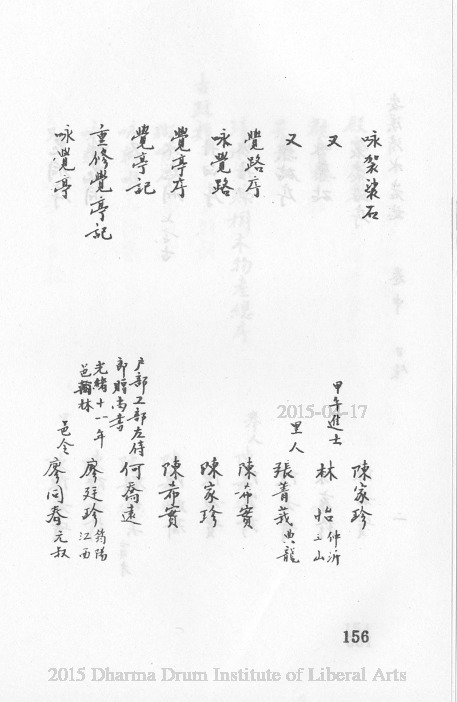 咏袈裟石 陳家珍
又 甲午進士 林怡 仲沂 玉山
又 里人 張菁莪 典龍
覺路序 陳希實
咏覺路 陳家珍
覺亭序 陳希實
覺亭記 戶部工部左侍郎贈尚書 何喬遠
重修覺亭記 光緒十一年邑翰林 廖廷珍 江西
咏覺亭 邑令 廖同春 元叔
2015-04-17
156
2015 Dharma Drum Institute of Liberal Arts